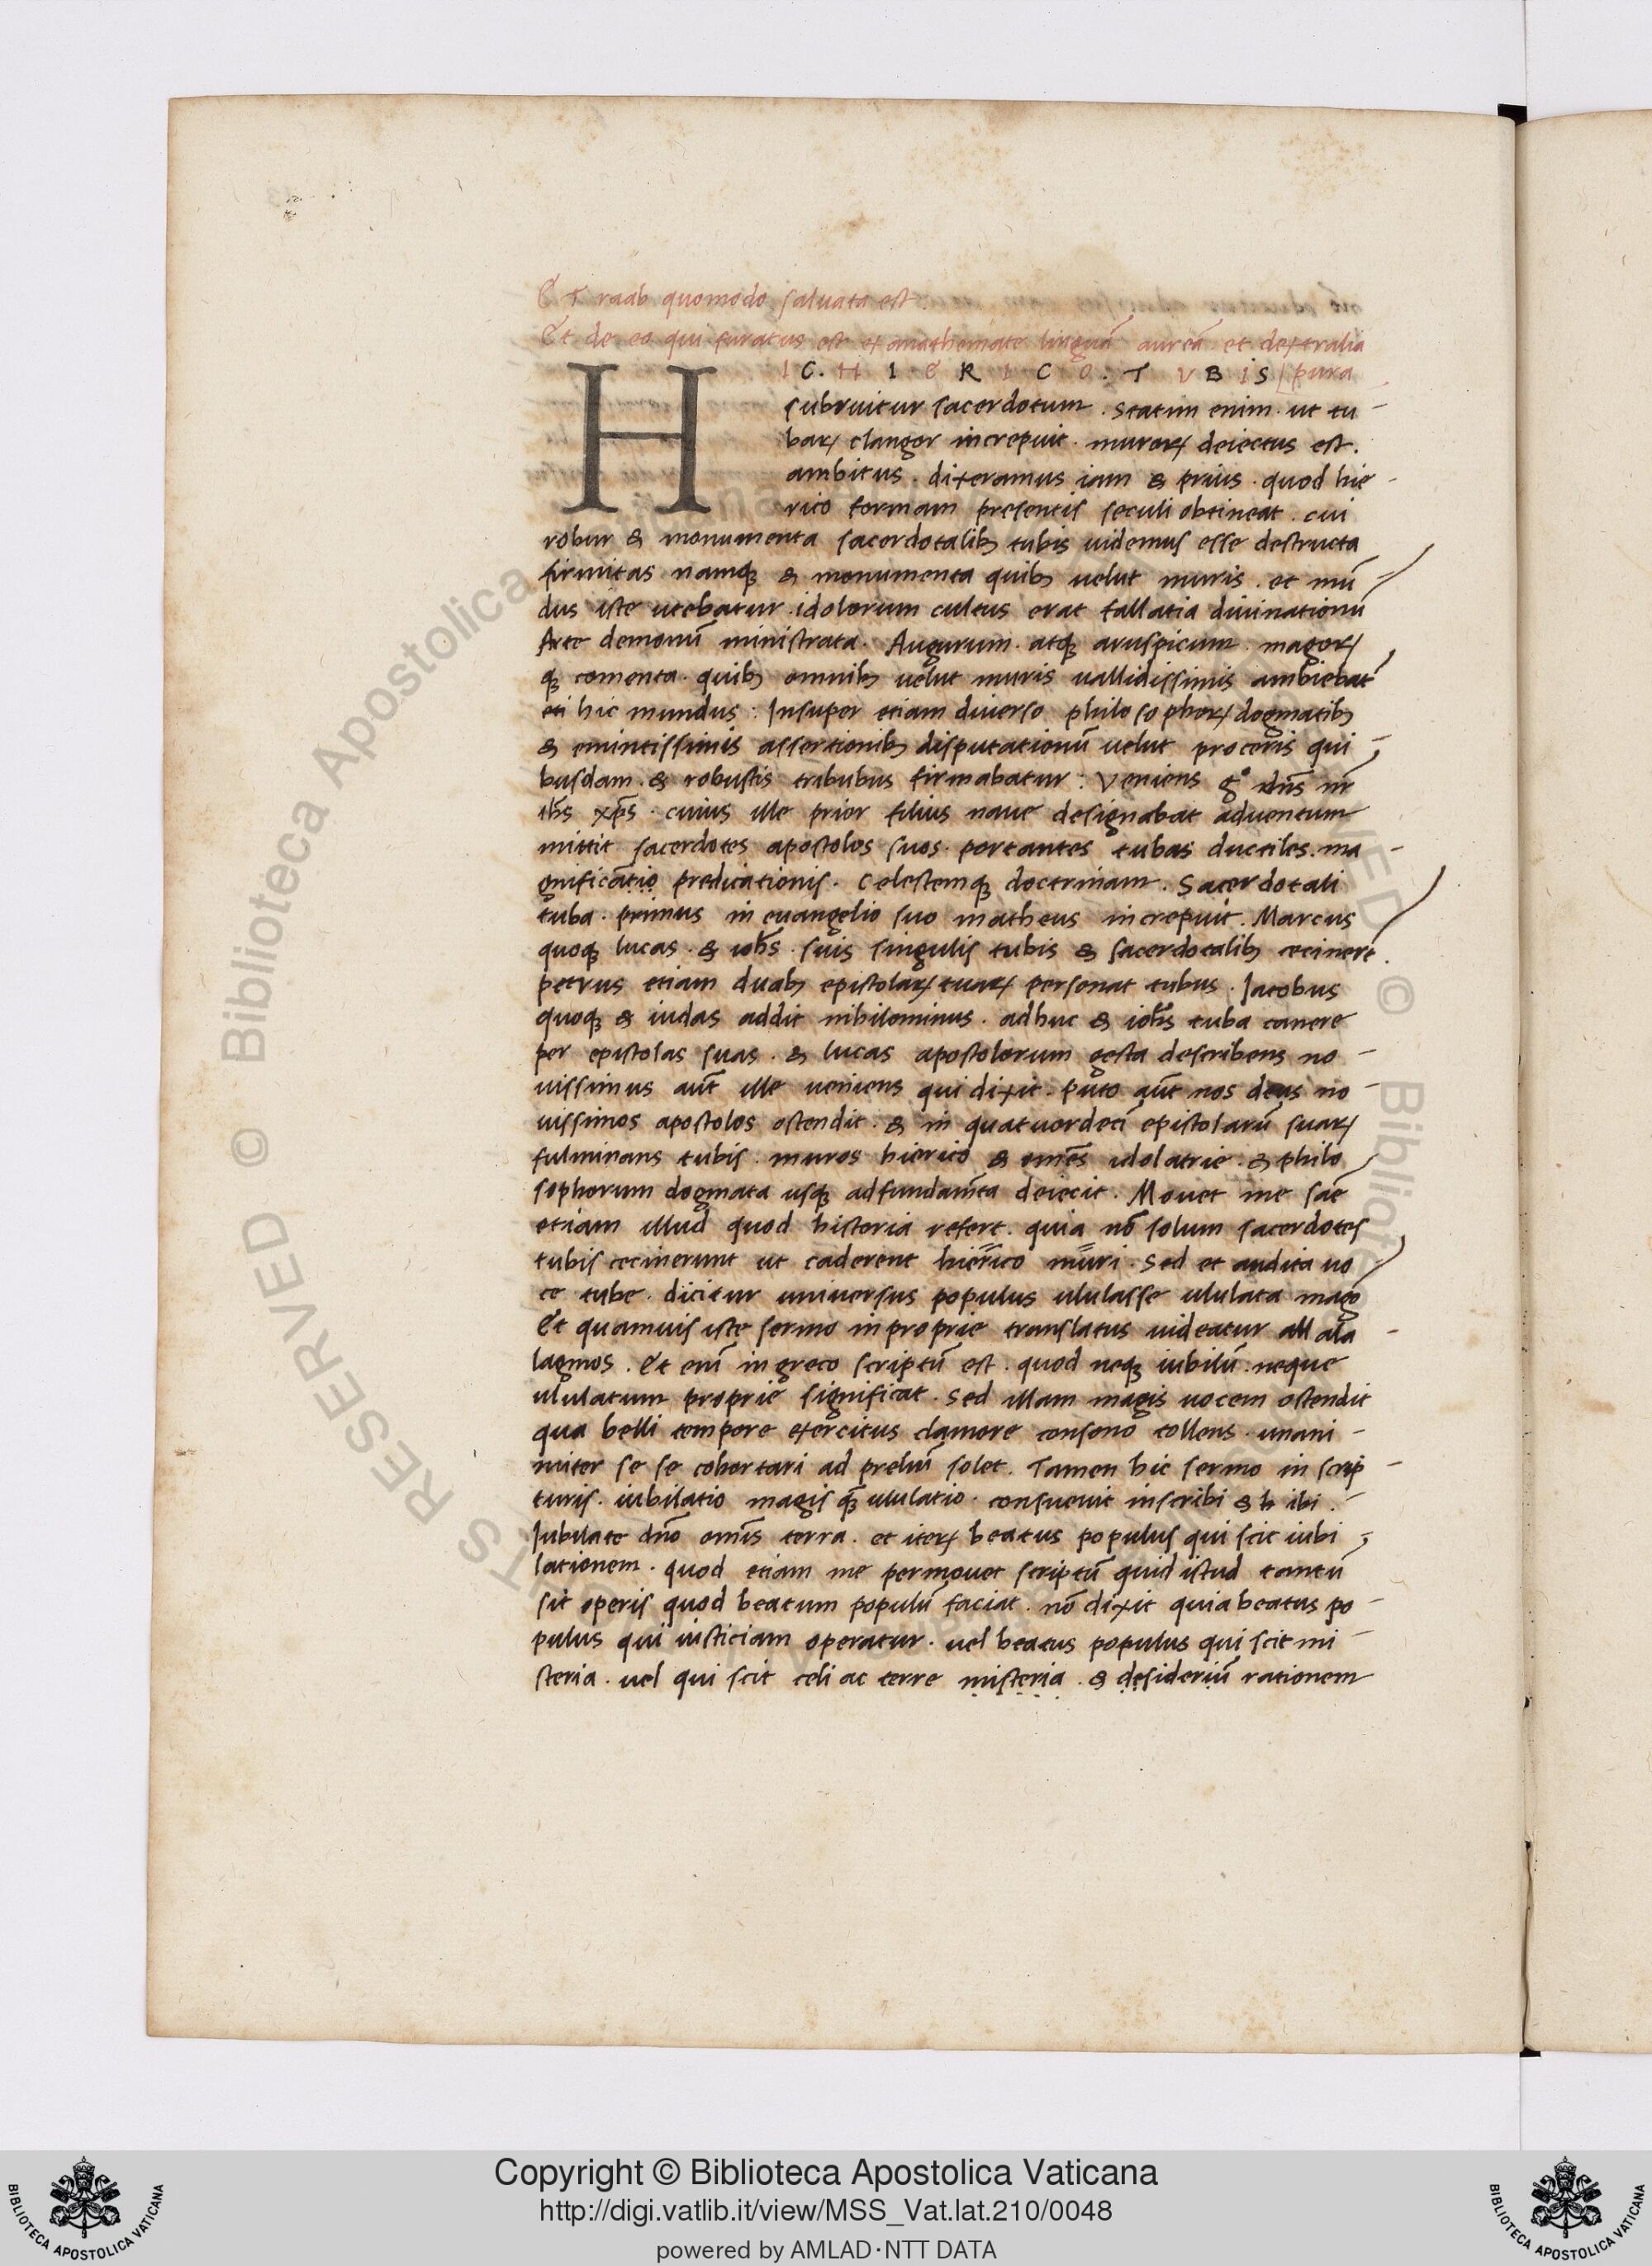 ET raab quomodo saluata est.
Et de eo qui furatus est ex anathemate linguā aureā et dextralia
pura
HIC. HIERICO. TVBIS
subruitur sacerdotum. statim enim. ut tu-
baꝝ clangor increpuit. muroꝝ deiectus est.
ambitus. dixeramus iam & prius. quod hie-
rico formam presentis seculi obtineat. cui
robur & monumenta sacerdotalibꝫ tubis uidemus esse destructa
firmitas namqꝫ & monumenta quibꝫ uelut muris. et mū
dus iste utebatur. idolorum cultus erat fallatia diuinationū
Arte demonū ministrata. Augurum. atqꝫ aruspicum. magoꝝ
qꝫ comenta. quibꝫ omnibꝫ uelut muris uallidissimis ambiebat
eti hic mundus: Insuper etiam diuerso philosophoꝝ dogmatibꝫ
& emintissimis assertionibꝫ disputationū uelut proceris qui-
busdam. & robustis tribubus firmabatur: Veniens gͦ dn̄s nr̄
ih̄s xp̄s. cuius ille prior filius naue designabat aduentum
mittit sacerdotes apostolos suos. portantes tubas ductiles. ma-
gnificatio predicationis. Celestemqꝫ doctrinam. Sacerdotali
tuba. primus in euangelio suo matheus increpuit. Marcus
quoqꝫ lucas. & ioh̄s. suis singulis tubis & sacerdotalibꝫ cecinert̄.
petrus etiam duabꝫ epistolaꝝ tuaꝝ personat tubus. Iacobus
quoqꝫ & iudas addit nihilominus. adhuc & ioh̄s tuba canere
per epistolas suas. & lucas apostolorum gesta describens no-
uissimus aūt ille ueniens qui dixit. puto aūt nos deus no-
uissimos apostolos ostendit. & in quatuordecī epistolarū suaꝝ
fulminans tubis. muros hierico & om̄es idolatrie. & philo
sophorum dogmata usqꝫ ad fundam̄ta deiecit. Mouet me saē
etiam illud quod historia refert. quia nō solum sacerdotes
tubis cecinerunt ut caderent hierico muri. Sed et audita uo
ce tube. dicitur uniuersus populus ululasse ululata mago
Et quamuis iste sermo inproprie translatus uideatur all ala-
lagmos. Et enī in greco scriptū est. quod neqꝫ iubilū. neque
ululatum proprie significat. Sed illam magis uocem ostendit
qua belli tempore exercitus clamore consono tollens. unani-
miter se se cohortari ad preliū solet. Tamen hic sermo in scrip-
turis. iubilatio magis qꝫ̄ ululatio. consueuit inscribi & h ibi.
Iubilate dn̄o omīs terra. et iteꝝ beatus populus qui scit iubi
lationem. quod etiam me permouet scriptū quid istud tantū
sit operis quod beatum populū faciat. nō dixit quia beatus po-
pulus qui iusticiam operatur. uel beatus populus qui scit mi-
steria. uel qui scit celi ac terre misteria. & desideriū rationem
RESERVED © Biblioteca Apostolica
Copyright © Biblioteca Apostolica Vaticana
http://digi.vatlib.it/view/MSS_Vat.lat.210/0048
powered by AMLAD·NTT DATA
BIBLIOTECA APOSTOLICA VATICANA
BIBLIOTECA APOSTOLICA VATICANA